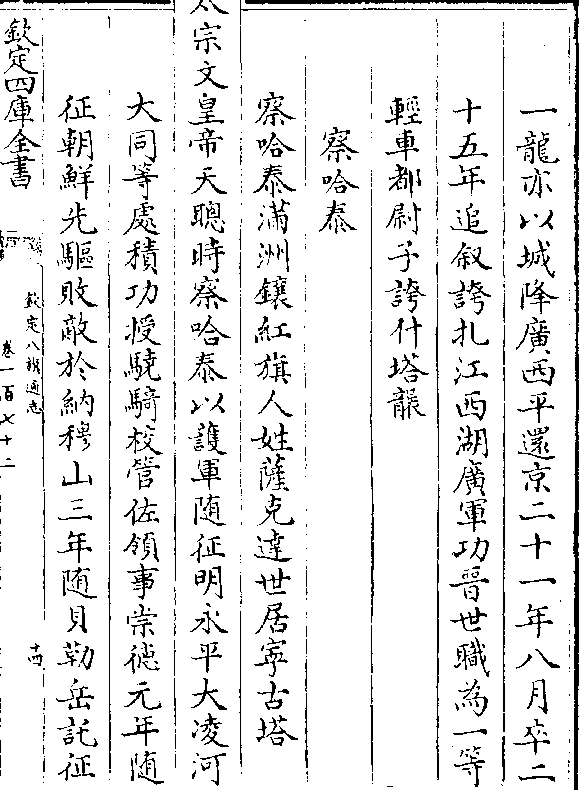 一龍亦以城降廣西平還京二十一年八月卒二
十五年追敘誇扎江西湖廣軍功晉世職為一等
輕車都尉子誇什塔襲
察哈泰
察哈泰滿洲鑲紅旗人姓薩克達世居寧古塔
太宗文皇帝天聰時察哈泰以護軍随征明永平大凌河
大同等處積功授驍騎校管佐領事崇德元年随
征朝鮮先驅敗敵於納穆山三年随貝勒岳託征
欽定四庫全書
欽定八旗通志
卷一百七十二